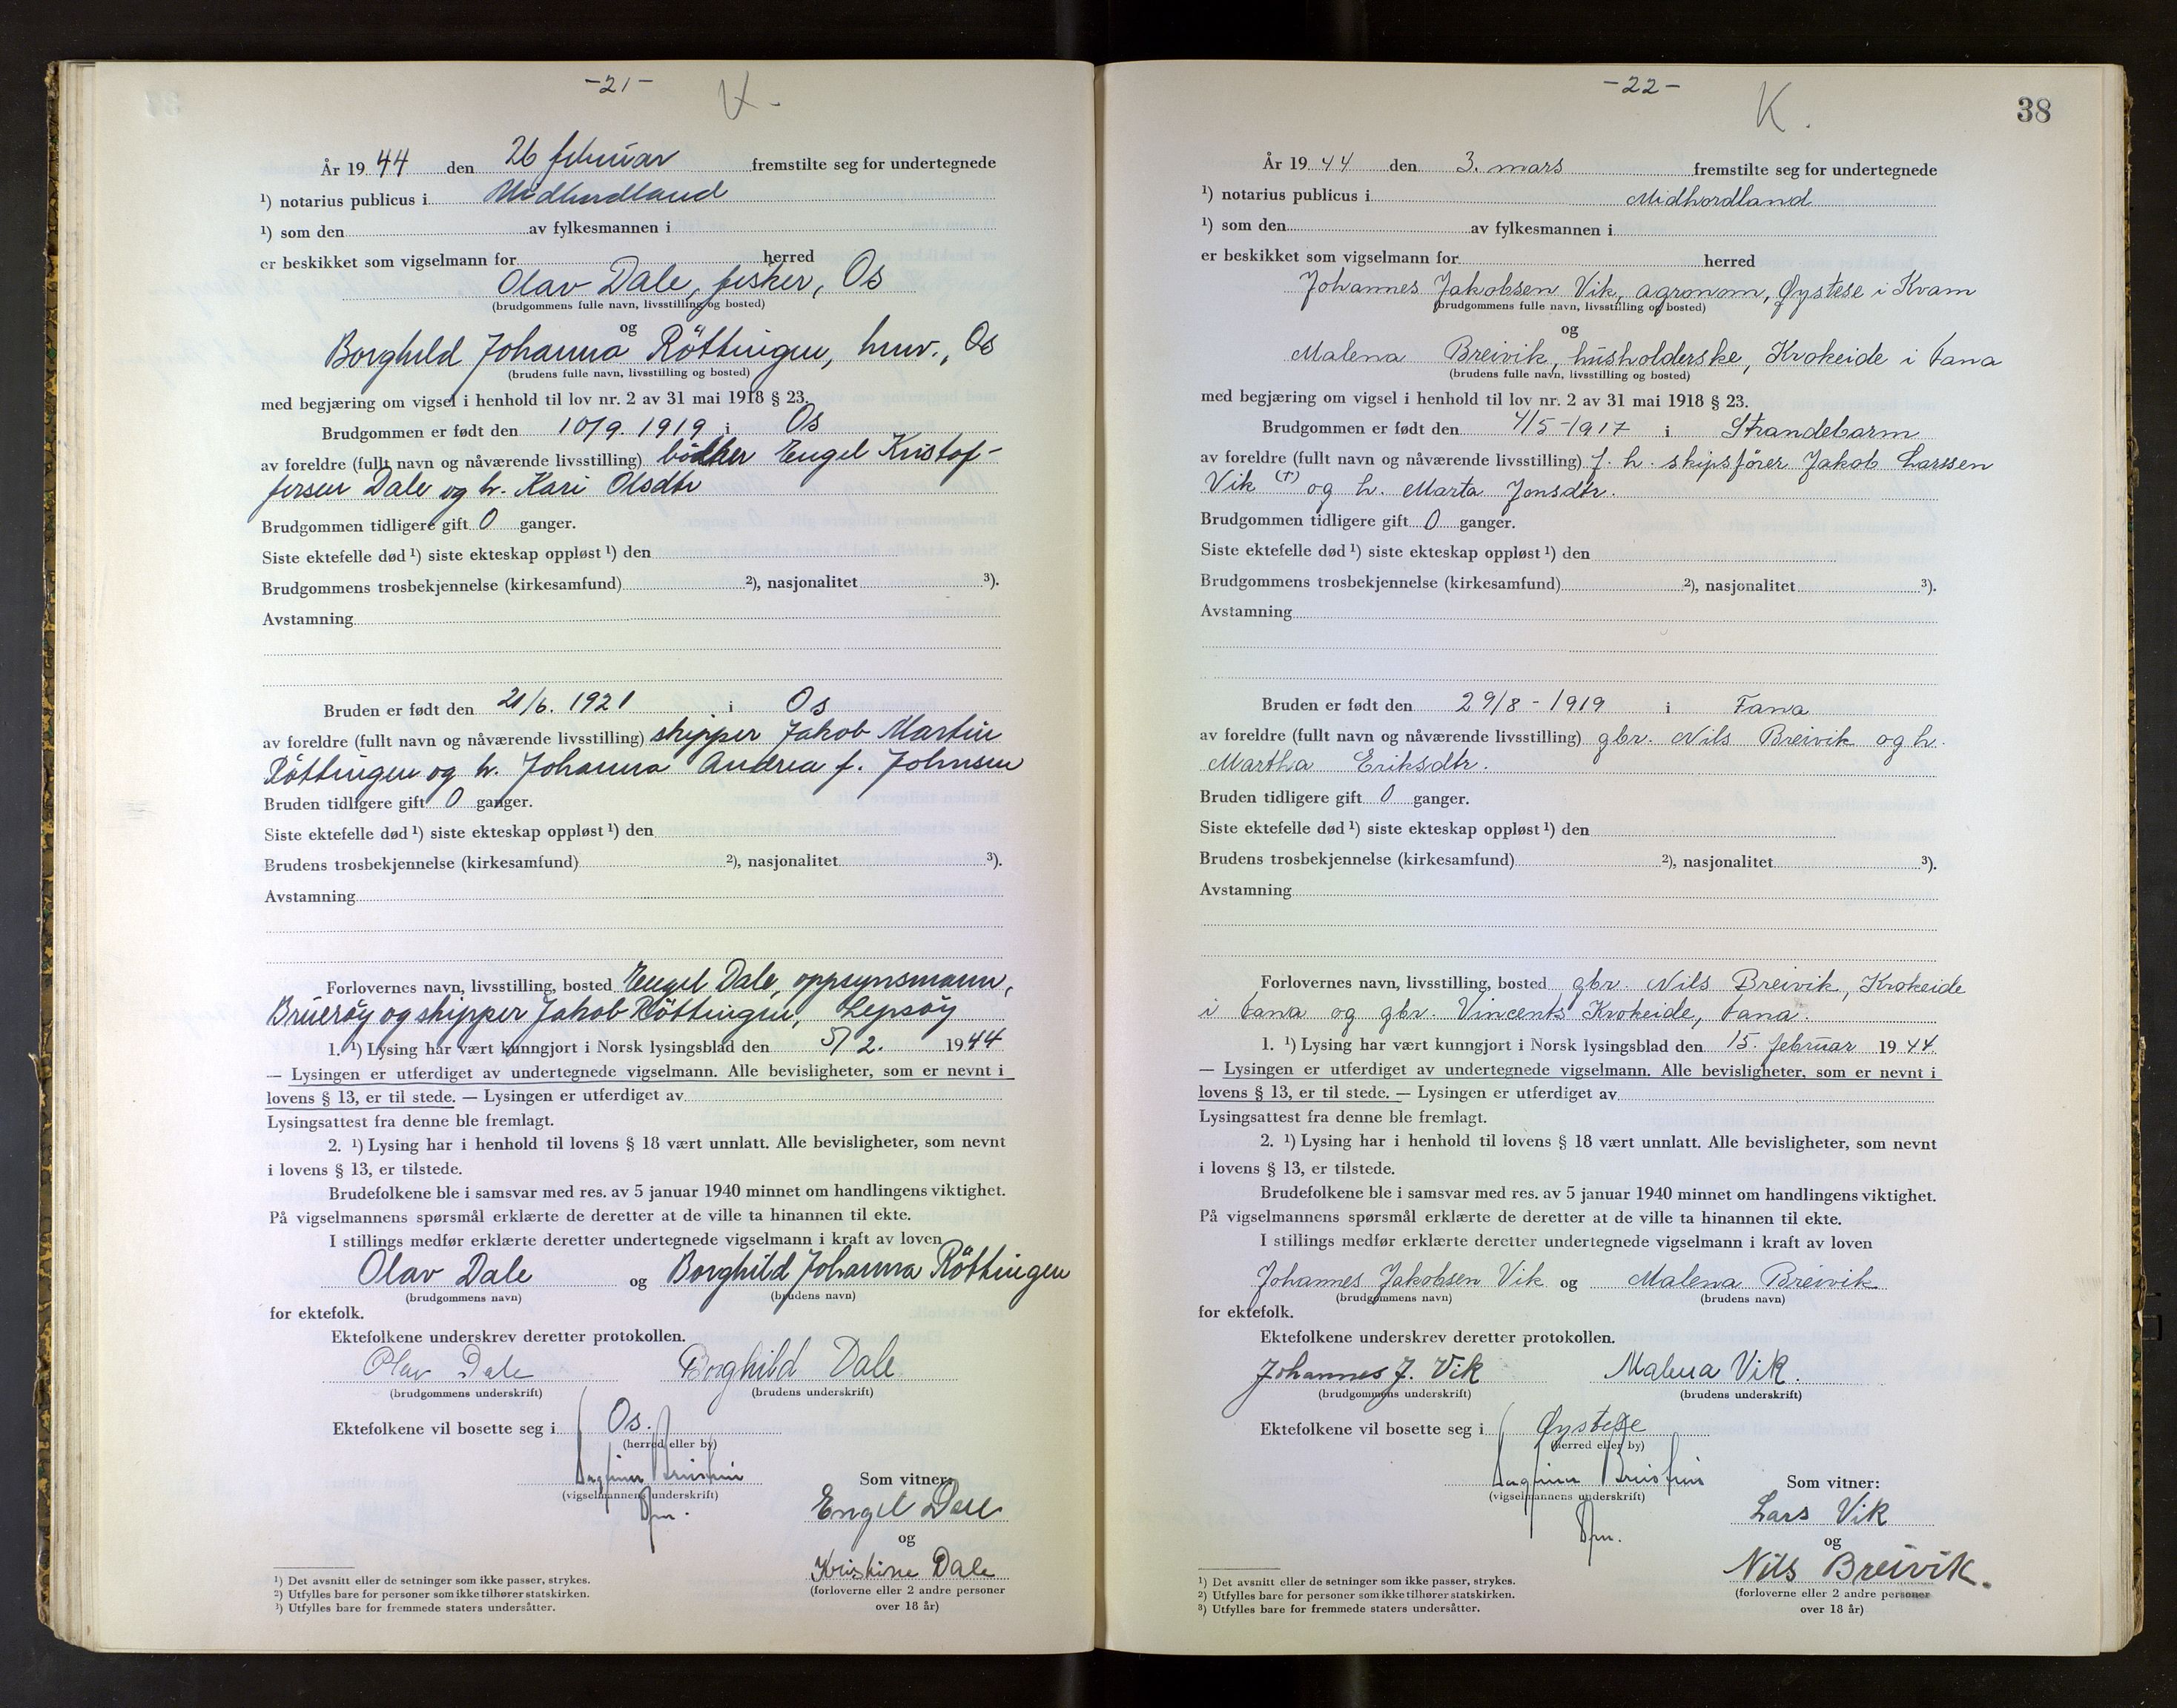 -21-
År 19 44 den 26 februar fremstilte seg for undertegnede
¹) notarius publicus i Midhordland
¹) som den av fylkesmannen i
er beskikket som vigselmann for herred
Olav Dale, fisker, Os
(brudgommens fulle navn, livsstilling og bosted)
og
Borghild Johanna Röttingen, husv., Os
(brudens fulle navn, livsstilling og bosted)
med begjæring om vigsel i henhold til lov nr. 2 av 31 mai 1918 § 23.
Brudgommen er født den 10/9. 1919 i Os
av foreldre (fullt navn og nåværende livsstilling) bödker Engel Kristof-
fersen Dale og h. Kari Olsdtr
Brudgommen tidligere gift 0 ganger.
Siste ektefelle død ¹) siste ekteskap oppløst ¹) den
Brudgommens trosbekjennelse (kirkesamfund) ²), nasjonalitet ³).
Avstamning
Bruden er født den 21/6. 1921 i Os
av foreldre (fullt navn og nåværende livsstilling) skipper Jakob Martin
Röttingen og h. Johanna Andrea f. Johnsen
Bruden tidligere gift 0 ganger.
Siste ektefelle død ¹) siste ekteskap oppløst ¹) den
Brudens trosbekjennelse (kirkesamfund) ²), nasjonalitet ³).
Avstamning
Forlovernes navn, livsstilling, bosted Engel Dale, oppsynsmann,
Bruerøy og skipper Jakob Röttingen, Lepsöy
1. ¹) Lysing har vært kunngjort i Norsk lysingsblad den 5/2. 1944
— Lysingen er utferdiget av undertegnede vigselmann. Alle bevisligheter, som er nevnt i
lovens § 13, er til stede. — Lysingen er utferdiget av
Lysingsattest fra denne ble fremlagt.
2. ¹) Lysing har i henhold til lovens § 18 vært unnlatt. Alle bevisligheter, som nevnt
i lovens § 13, er tilstede.
Brudefolkene ble i samsvar med res. av 5 januar 1940 minnet om handlingens viktighet.
På vigselmannens spørsmål erklærte de deretter at de ville ta hinannen til ekte.
I stillings medfør erklærte deretter undertegnede vigselmann i kraft av loven
Olav Dale og Borghild Johanna Röttingen
(brudgommens navn) (brudens navn)
for ektefolk.
Ektefolkene underskrev deretter protokollen.
Olav Dale Borghild Dale
(brudgommens underskrift) (brudens underskrift)
Ektefolkene vil bosette seg i Os.
(herred eller by)
(vigselmannens underskrift)
Som vitner:
Engel Dale
og
Kristine Dale
(forloverne eller 2 andre personer
over 18 år)
¹) Det avsnitt eller de setninger som ikke passer, strykes.
²) Utfylles bare for personer som ikke tilhører statskirken.
³) Utfylles bare for fremmede staters undersåtter.
-22-
K.
38
År 19 44 den 3. mars fremstilte seg for undertegnede
¹) notarius publicus i Midhordland
¹) som den av fylkesmannen i
er beskikket som vigselmann for herred
Johannes Jakobsen Vik, agronom, Øystese i Kvam
(brudgommens fulle navn, livsstilling og bosted)
og
Malena Breivik, husholderske, Krokeide i Fana
(brudens fulle navn, livsstilling og bosted)
med begjæring om vigsel i henhold til lov nr. 2 av 31 mai 1918 § 23.
Brudgommen er født den 4/5-1917 i Strandebarm
av foreldre (fullt navn og nåværende livsstilling) f. h. skipsfører Jakob Larssen
Vik (†) og h. Marta Jonsdtr.
Brudgommen tidligere gift 0 ganger.
Siste ektefelle død ¹) siste ekteskap oppløst ¹) den
Brudgommens trosbekjennelse (kirkesamfund) ²), nasjonalitet ³).
Avstamning
Bruden er født den 29/8-1919 i Fana
av foreldre (fullt navn og nåværende livsstilling) gbr. Nils Breivik og h.
Martha Eriksdtr.
Bruden tidligere gift 0 ganger.
Siste ektefelle død ¹) siste ekteskap oppløst ¹) den
Brudens trosbekjennelse (kirkesamfund) ²), nasjonalitet ³).
Avstamning
Forlovernes navn, livsstilling, bosted gbr. Nils Breivik, Krokeide
i Fana og gbr. Vincents Krokeide, Fana.
1. ¹) Lysing har vært kunngjort i Norsk lysingsblad den 15. februar 19 44
— Lysingen er utferdiget av undertegnede vigselmann. Alle bevisligheter, som er nevnt i
lovens § 13, er til stede. — Lysingen er utferdiget av
Lysingsattest fra denne ble fremlagt.
2. ¹) Lysing har i henhold til lovens § 18 vært unnlatt. Alle bevisligheter, som nevnt
i lovens § 13, er tilstede.
Brudefolkene ble i samsvar med res. av 5 januar 1940 minnet om handlingens viktighet.
På vigselmannens spørsmål erklærte de deretter at de ville ta hinannen til ekte.
I stillings medfør erklærte deretter undertegnede vigselmann i kraft av loven
Johannes Jakobsen Vik og Malena Breivik
(brudgommens navn) (brudens navn)
for ektefolk.
Ektefolkene underskrev deretter protokollen.
Johannes J. Vik Malena Vik.
(brudgommens underskrift) (brudens underskrift)
Ektefolkene vil bosette seg i Øystese
(herred eller by)
(vigselmannens underskrift)
Som vitner:
Lars Vik
og
Nils Breivik.
(forloverne eller 2 andre personer
over 18 år)
¹) Det avsnitt eller de setninger som ikke passer, strykes.
²) Utfylles bare for personer som ikke tilhører statskirken.
³) Utfylles bare for fremmede staters undersåtter.